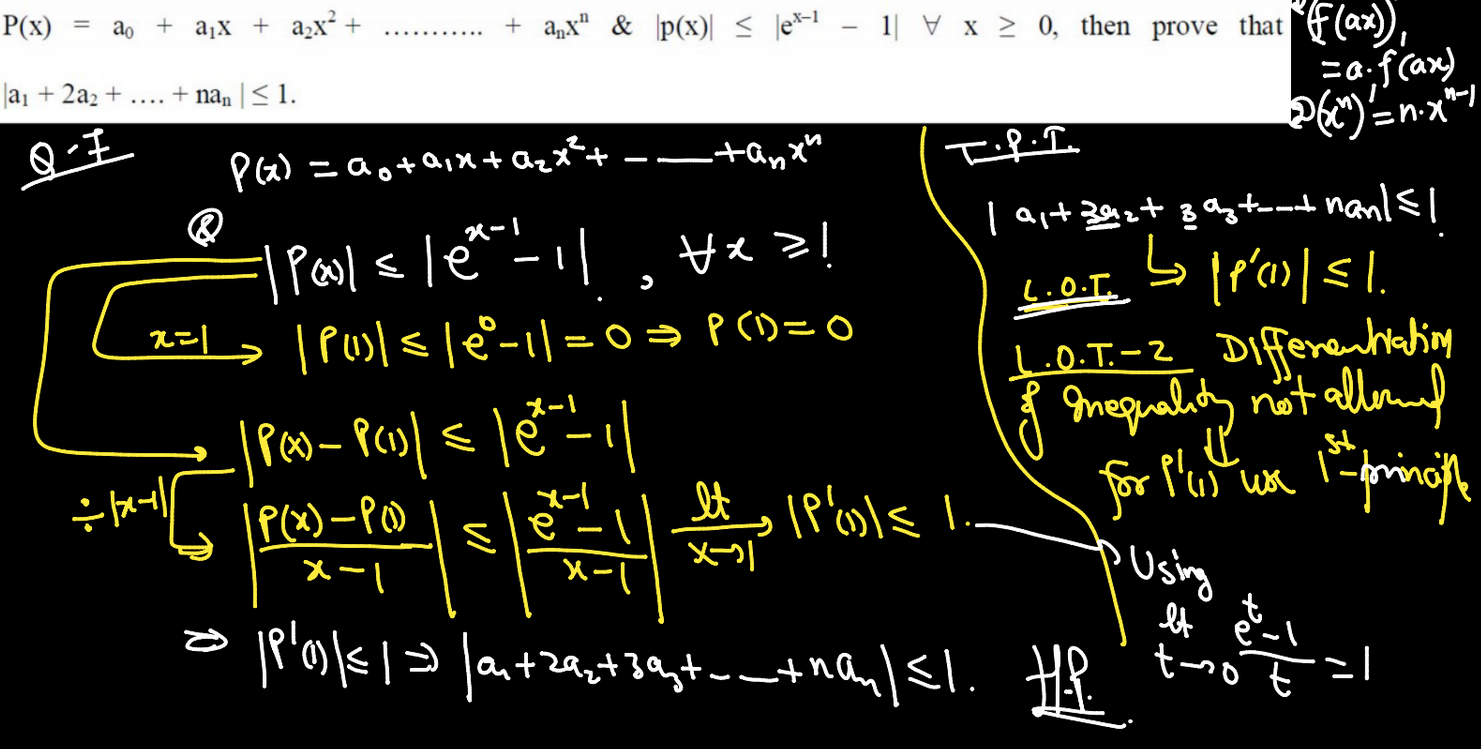 P(x) = a₀ + a₁x + a₂x² + ........... + aₙxⁿ & |p(x)| ≤ |eˣ⁻¹ − 1| ∀ x ≥ 0, then prove that
|a₁ + 2a₂ + .... + naₙ | ≤ 1.
(f(ax))'
= a·f'(ax)
(xⁿ)' = n·xⁿ⁻¹
P(x) = a₀ + a₁x + a₂x² + ------ + aₙxⁿ
&
|P(x)| ≤ |eˣ⁻¹ − 1| , ∀x ≥ 1
x=1 → |P(1)| ≤ |e⁰ − 1| = 0 ⇒ P(1) = 0
|P(x) − P(1)| ≤ |eˣ⁻¹ − 1|
÷|x−1| ⇒ |(P(x) − P(1))/(x − 1)| ≤ |(eˣ⁻¹ − 1)/(x − 1)| lt x→1 |P'(1)| ≤ 1.
⇒ |P'(1)| ≤ 1 ⇒ |a₁ + 2a₂ + 3a₃ + ---- + naₙ| ≤ 1. H.P.
T.P.T.
| a₁ + 2a₂ + 3a₃ + --- + naₙ| ≤ 1
L.O.T. ↳ |P'(1)| ≤ 1.
L.O.T.−2 Differentiation
of Inequality not allowed
⇓
for P'(1) use 1st-principle
Using
lt t→0 (eᵗ − 1)/t = 1